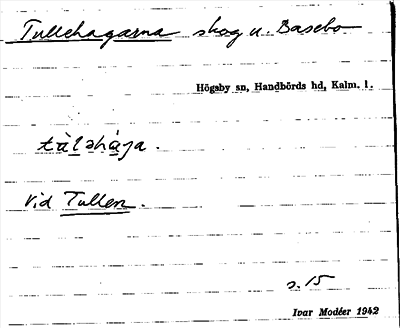 Tullehagarna skog u. Basebo
Högsby sn, Handbörds hd, Kalm. l.
tàləhàga.
Vid Tullen.
s. 15
Ivar Modéer 1942